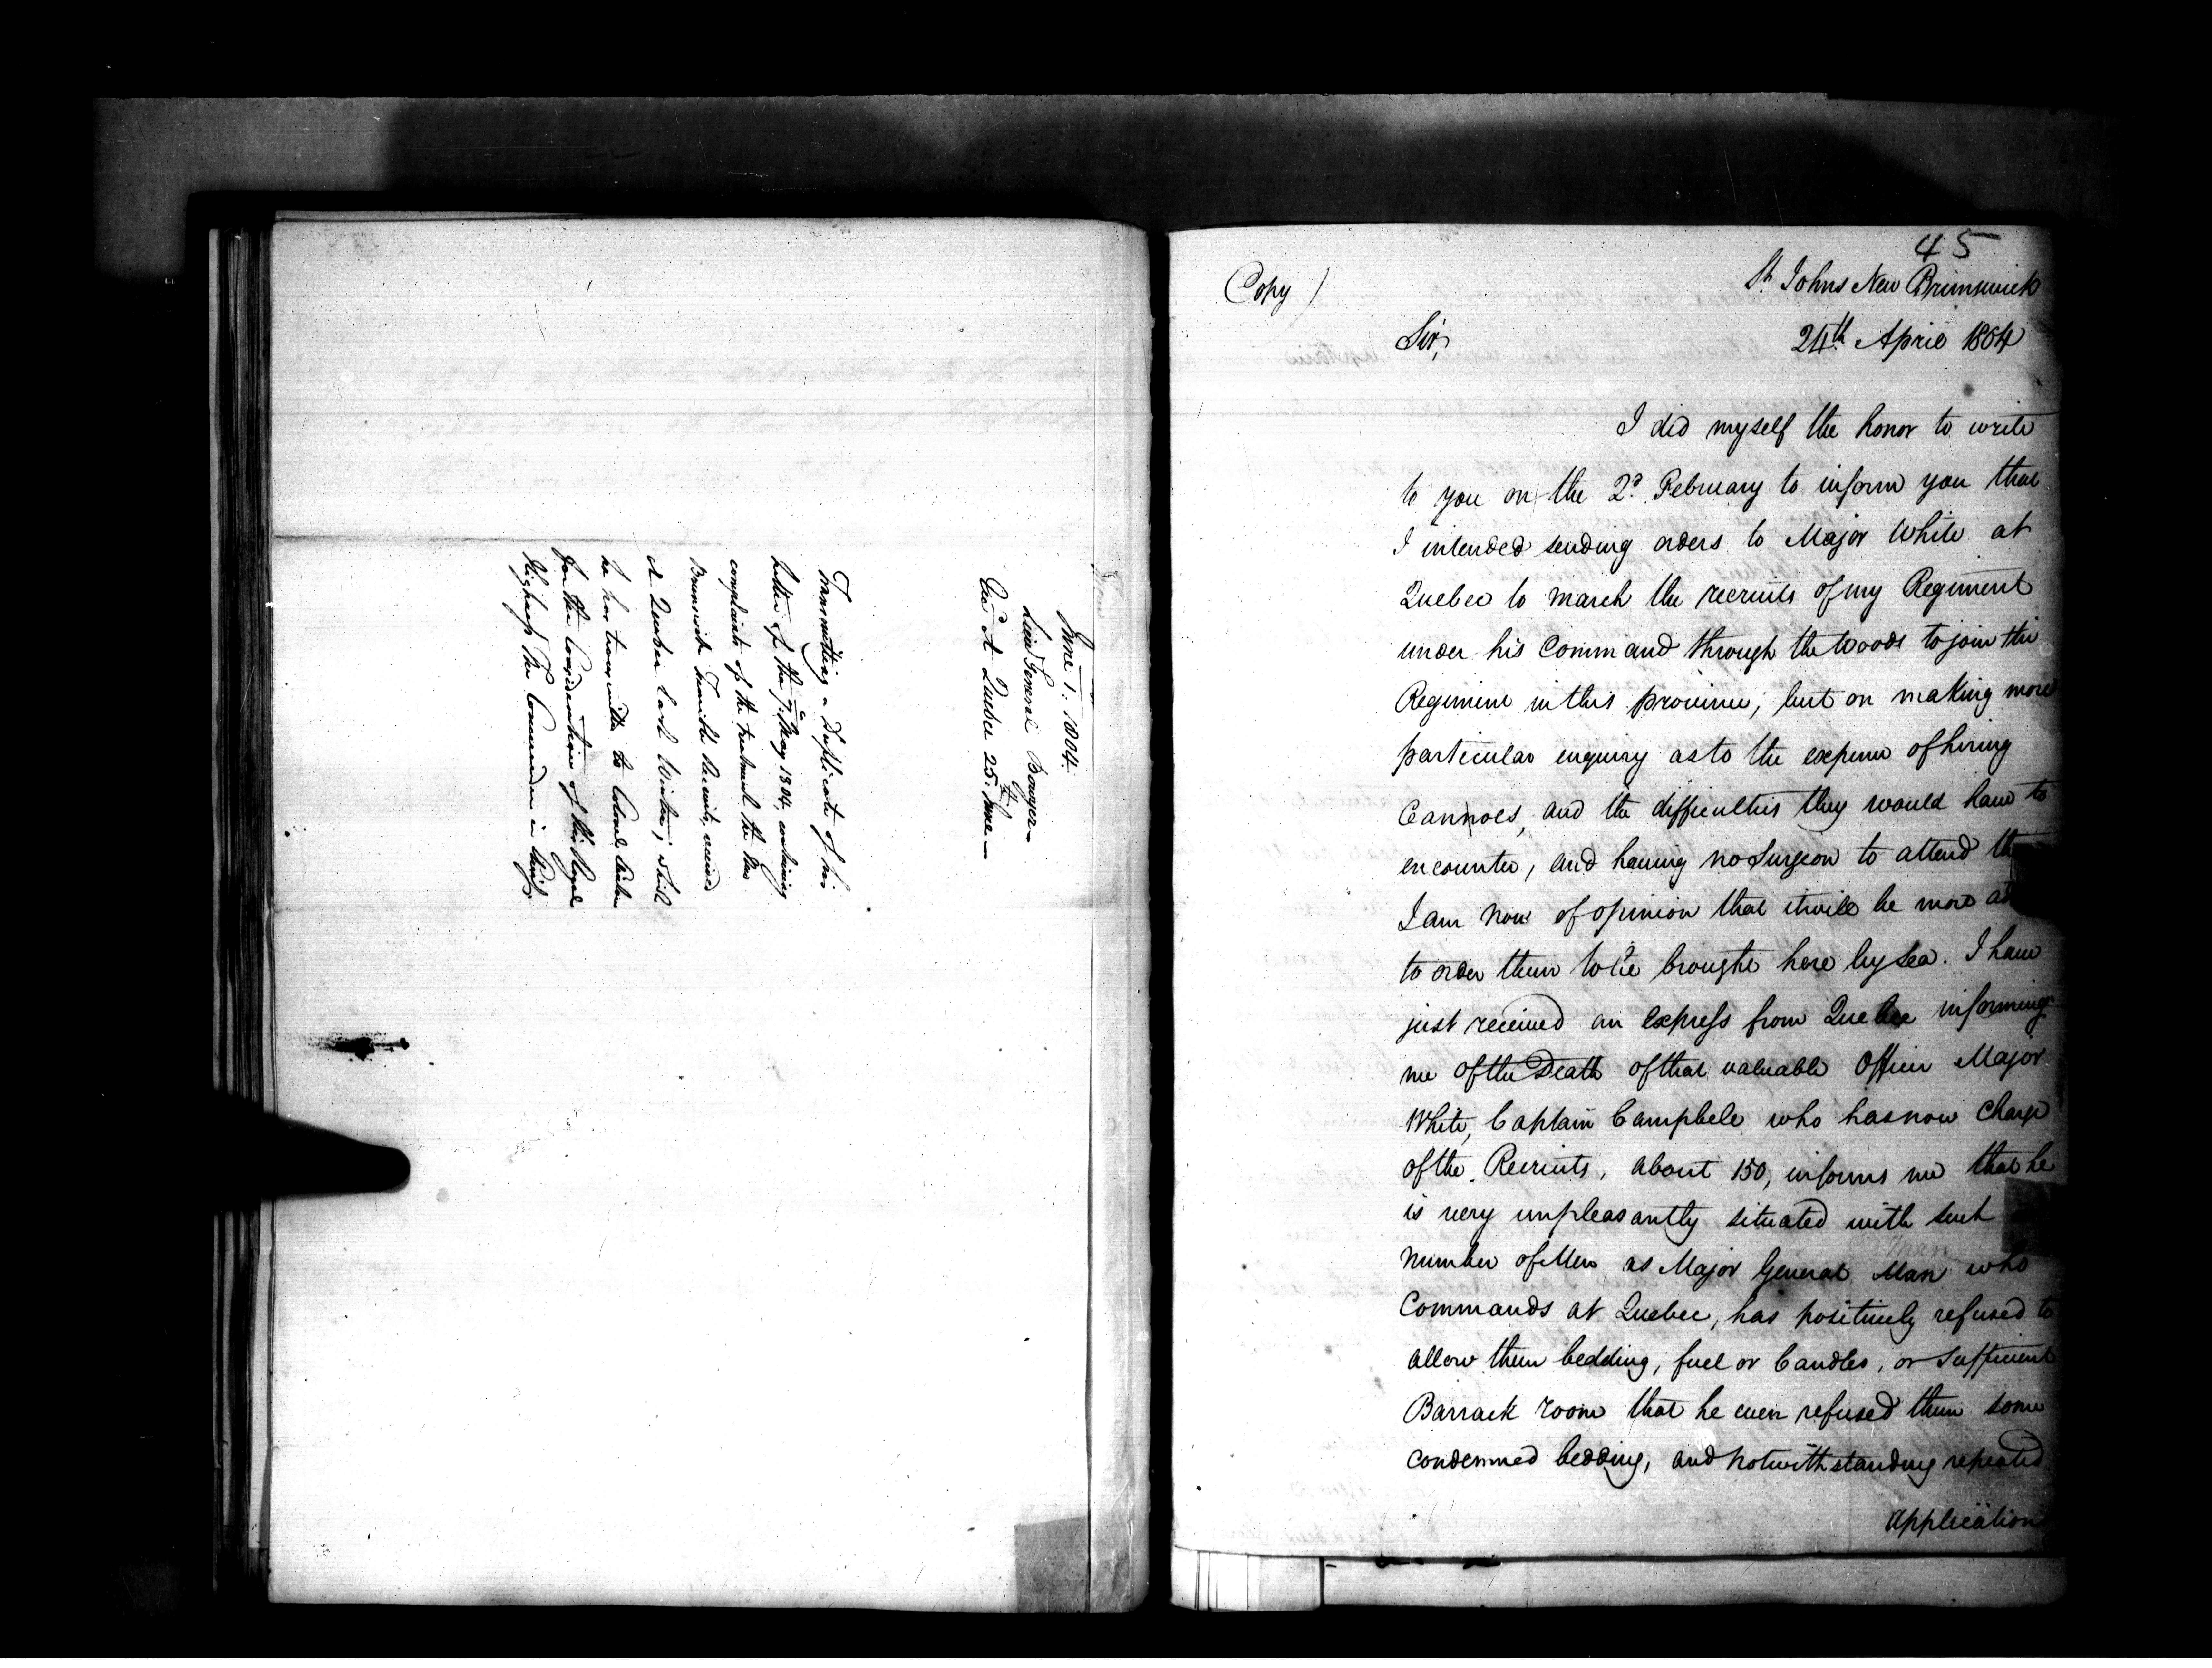 June 1. 1804.
Lieut General Bowyer—
Ecd At Quebec 25th June—
Transmitting a Duplicate of his
letter of the 7th May 1804, containing
complaints of the treatment the New
Brunswick Fencible Recruits, received
at Quebec last Winter; which
he has transmitted to Colonel
for the Consideration of His Royal
Highness The Commander in Chief.
45
Copy)
St Johns New Brunswick
24th April 1804
Sir,
I did myself the honor to write
to you on the 2d. February to inform you that
I intended sending orders to Major White at
Quebec to march the recruits of my Regiment
under his Command through the Woods to join the
Regiment in this province; but on making more
particular enquiry as to the expence of hiring
Cannoes, and the difficulties they would have to
encounter, and having no Surgeon to attend
I am now of opinion that it will be more
to order them to be brought here by Sea. I have
just received an express from Quebec informing
me of the Death of that valuable Officer Major
White, Captain Campbell who has now Charge
of the Recruits, about 150, informs me that he
is very unpleasantly situated with such
number of Men as Major General Man who
Commands at Quebec, has positively refused to
allow them bedding, fuel or Candles, or Sufficient
Barrack room that he even refused them some
condemned bedding, and notwithstanding repeated
Application